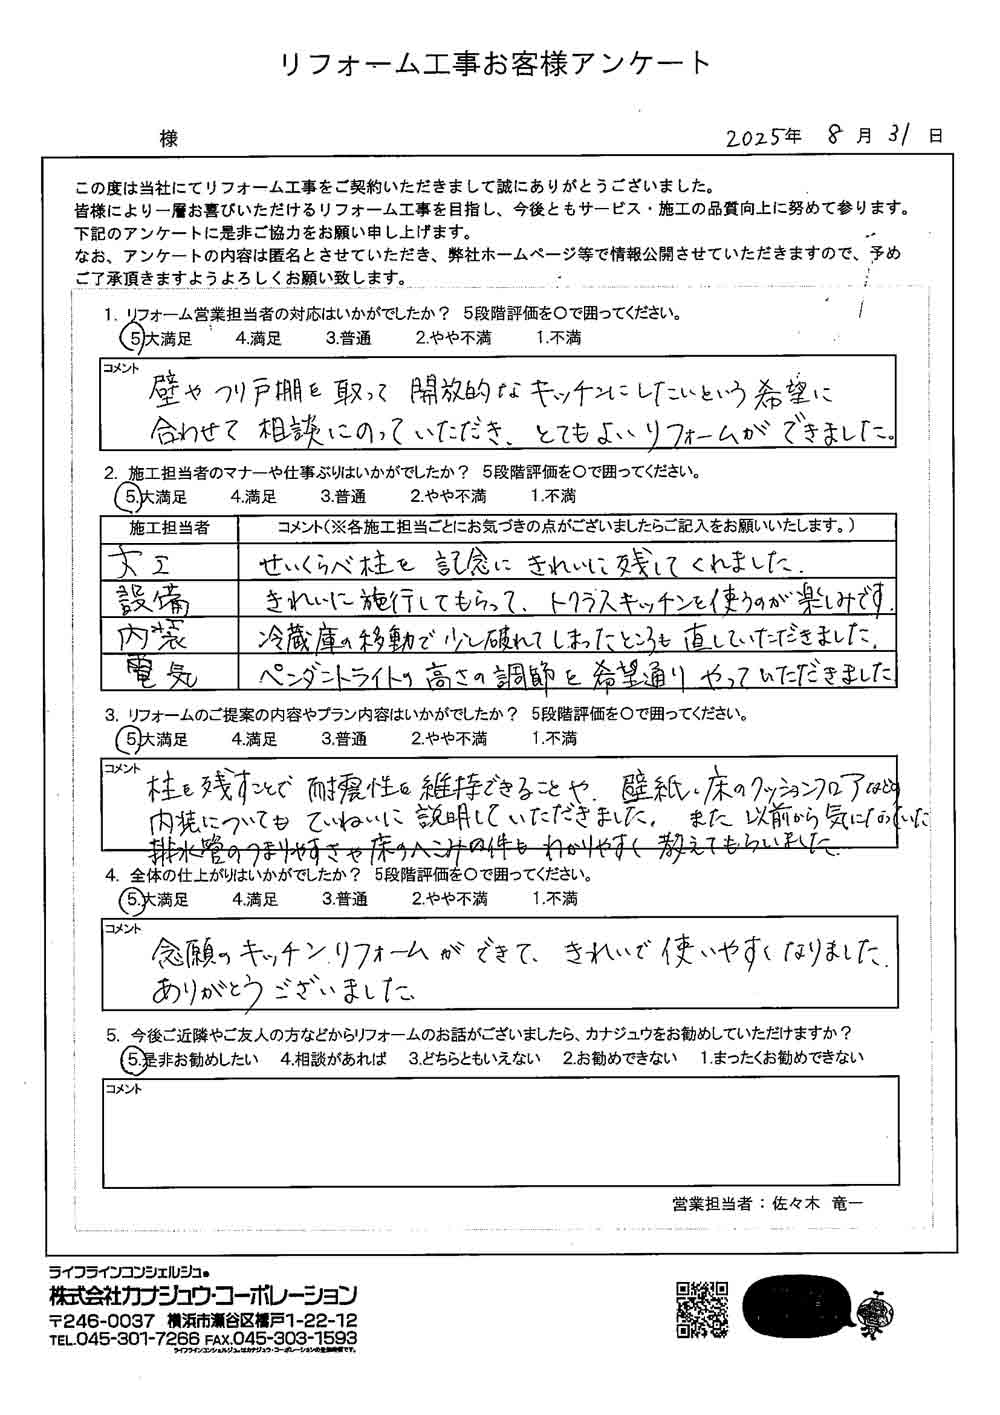 リフォーム工事お客様アンケート
様
2025年 8月 31日
この度は当社にてリフォーム工事をご契約いただきまして誠にありがとうございました。
皆様により一層お喜びいただけるリフォーム工事を目指し、今後ともサービス・施工の品質向上に努めて参ります。
下記のアンケートに是非ご協力をお願い申し上げます。
なお、アンケートの内容は匿名とさせていただき、弊社ホームページ等で情報公開させていただきますので、予め
ご了承頂きますようよろしくお願い致します。
1. リフォーム営業担当者の対応はいかがでしたか？ 5段階評価を〇で囲ってください。
5.大満足 4.満足 3.普通 2.やや不満 1.不満
コメント
壁やつり戸棚を取って開放的なキッチンにしたいという希望に
合わせて相談にのっていただき、とてもよいリフォームができました。
2. 施工担当者のマナーや仕事ぶりはいかがでしたか？ 5段階評価を〇で囲ってください。
5.大満足 4.満足 3.普通 2.やや不満 1.不満
施工担当者 コメント（※各施工担当ごとにお気づきの点がございましたらご記入をお願いいたします。）
大工 せいくらべ柱を記念にきれいに残してくれました。
設備 きれいに施行してもらって、トクラスキッチンを使うのが楽しみです。
内装 冷蔵庫の移動で少し破れてしまったところも直していただきました。
電気 ペンダントライトの高さの調節を希望通りやっていただきました
3. リフォームのご提案の内容やプラン内容はいかがでしたか？ 5段階評価を〇で囲ってください。
5.大満足 4.満足 3.普通 2.やや不満 1.不満
コメント
柱を残すことで耐震性を維持できることや、壁紙・床のクッションフロアなどの
内装についてもていねいに説明していただきました。また以前から気になっていた
排水管のつまりやすさや床のへこみの件もわかりやすく教えてもらいました。
4. 全体の仕上がりはいかがでしたか？ 5段階評価を〇で囲ってください。
5.大満足 4.満足 3.普通 2.やや不満 1.不満
コメント
念願のキッチンリフォームができて、きれいで使いやすくなりました。
ありがとうございました。
5. 今後ご近隣やご友人の方などからリフォームのお話がございましたら、カナジュウをお勧めしていただけますか？
5.是非お勧めしたい 4.相談があれば 3.どちらともいえない 2.お勧めできない 1.まったくお勧めできない
コメント
営業担当者：佐々木 竜一
ライフラインコンシェルジュ®
株式会社カナジュウ・コーポレーション
〒246-0037 横浜市瀬谷区橋戸1-22-12
TEL.045-301-7266 FAX.045-303-1593
ライフラインコンシェルジュ®はカナジュウ・コーポレーションの登録商標です。